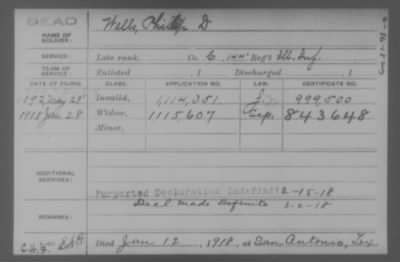 DEAD
Wells, Phillip D
NAME OF SOLDIER:
SERVICE: Late rank, Co. C, 144" Reg't Ill. Inf.
TERM OF SERVICE Enlisted , 1 Discharged , 1
DATE OF FILING. CLASS. APPLICATION NO. LAW. CERTIFICATE NO.
1892 May 28 Invalid, 1,114,351 999,500
1918 Jan 28 Widow, 1115,607 Exp. 843648
Minor,
ADDITIONAL SERVICES:
Purported Declaration Indefinite 2-15-18
Decl. made definite 3-2-18
REMARKS:
Died Jan 12, 1918, at San Antonio, Tex